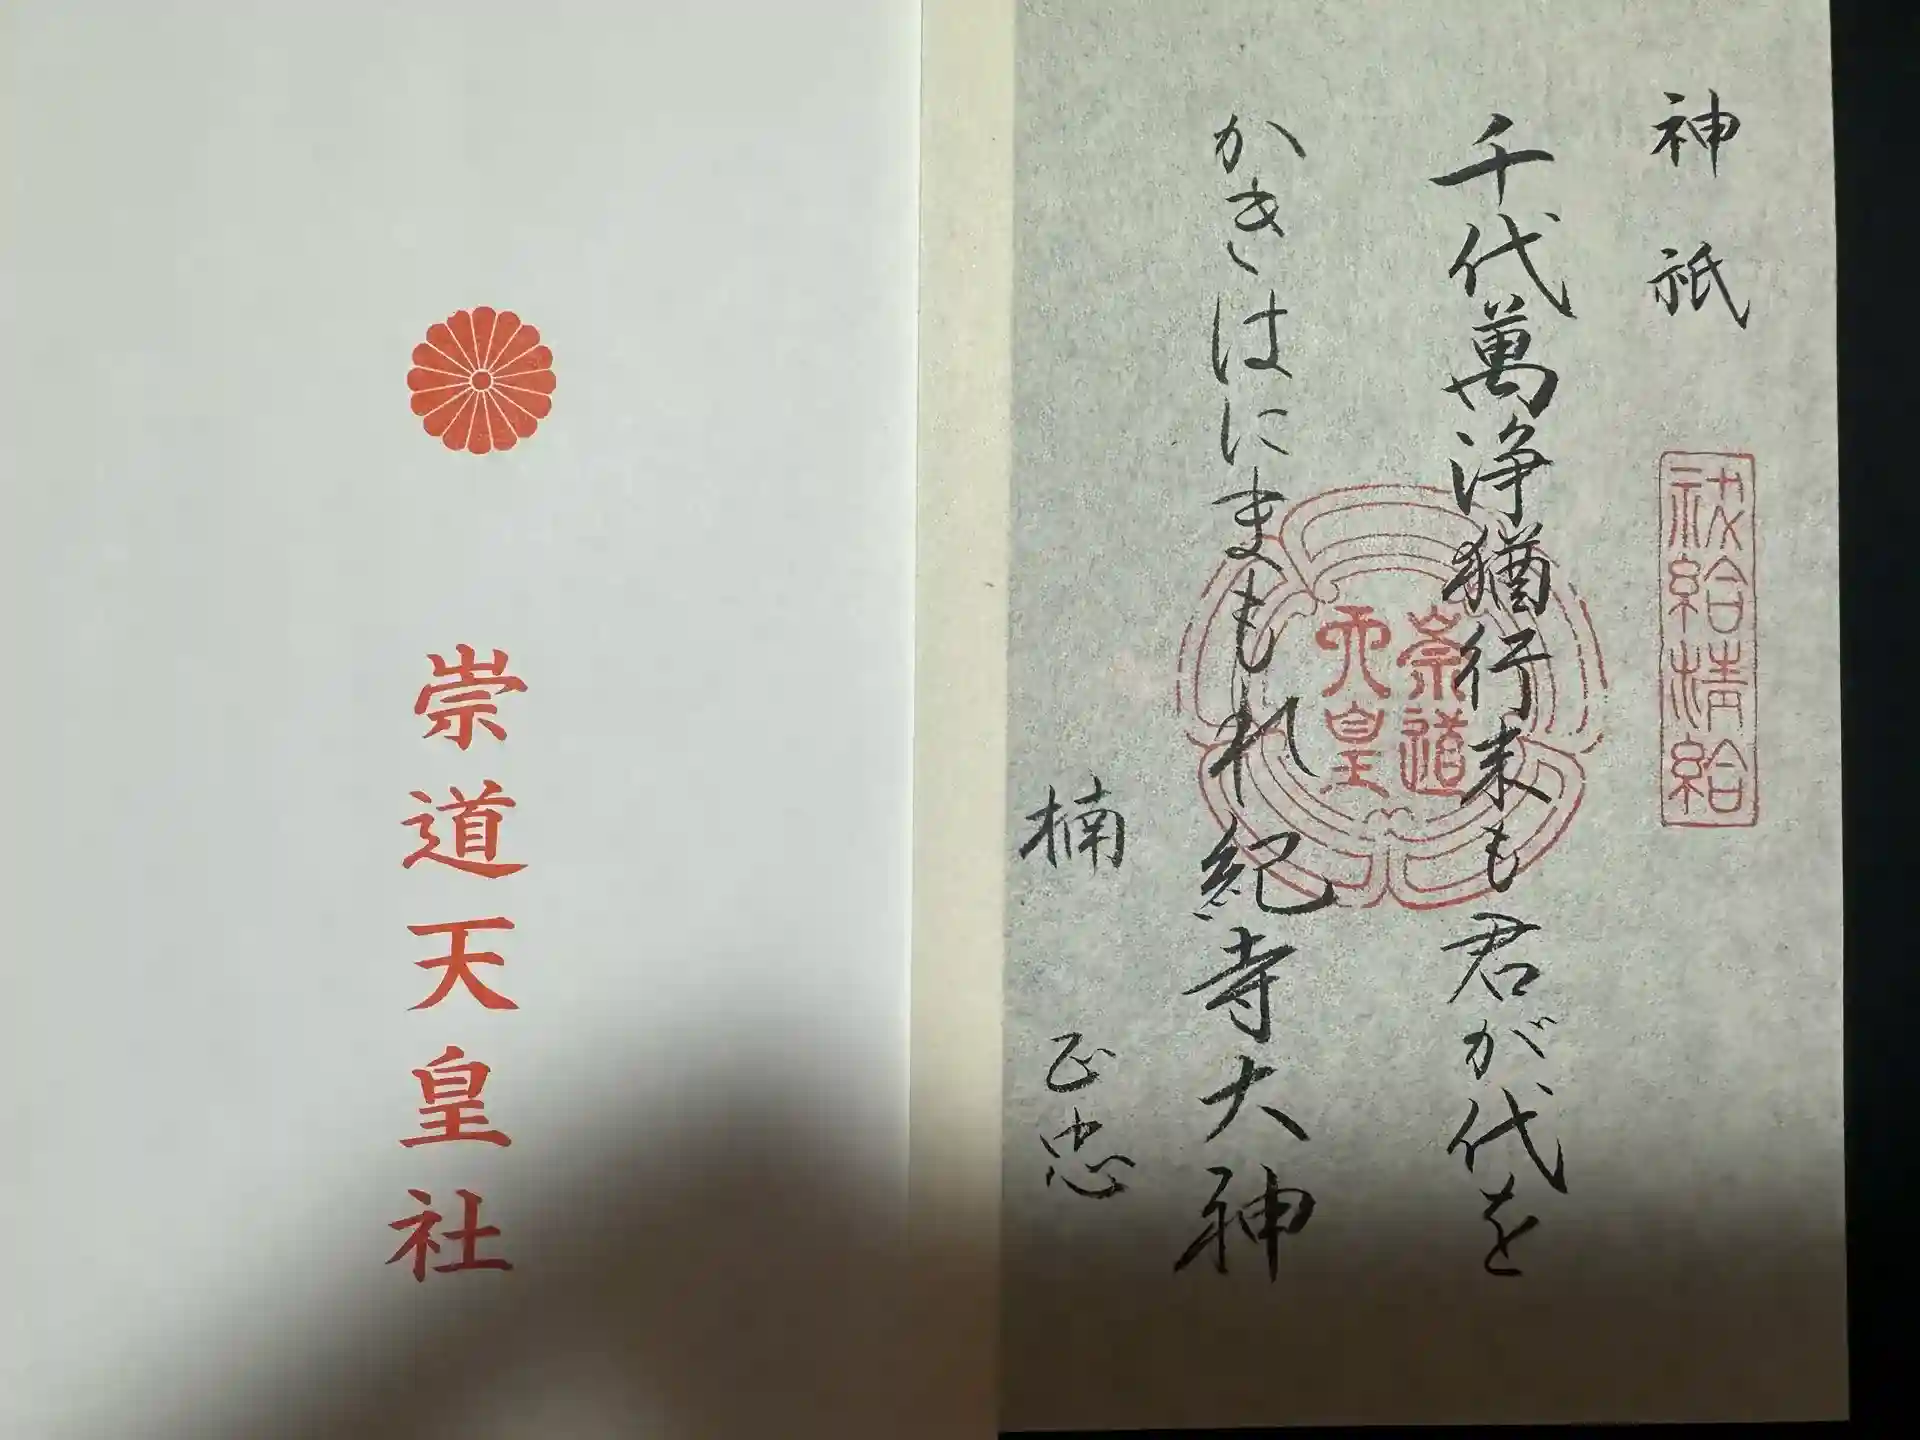 神祇
祓給清給
千代萬浄猶行末も君が代を
かきはにまもれ紀寺大神
楠 正忠
崇道
天皇
崇道天皇社